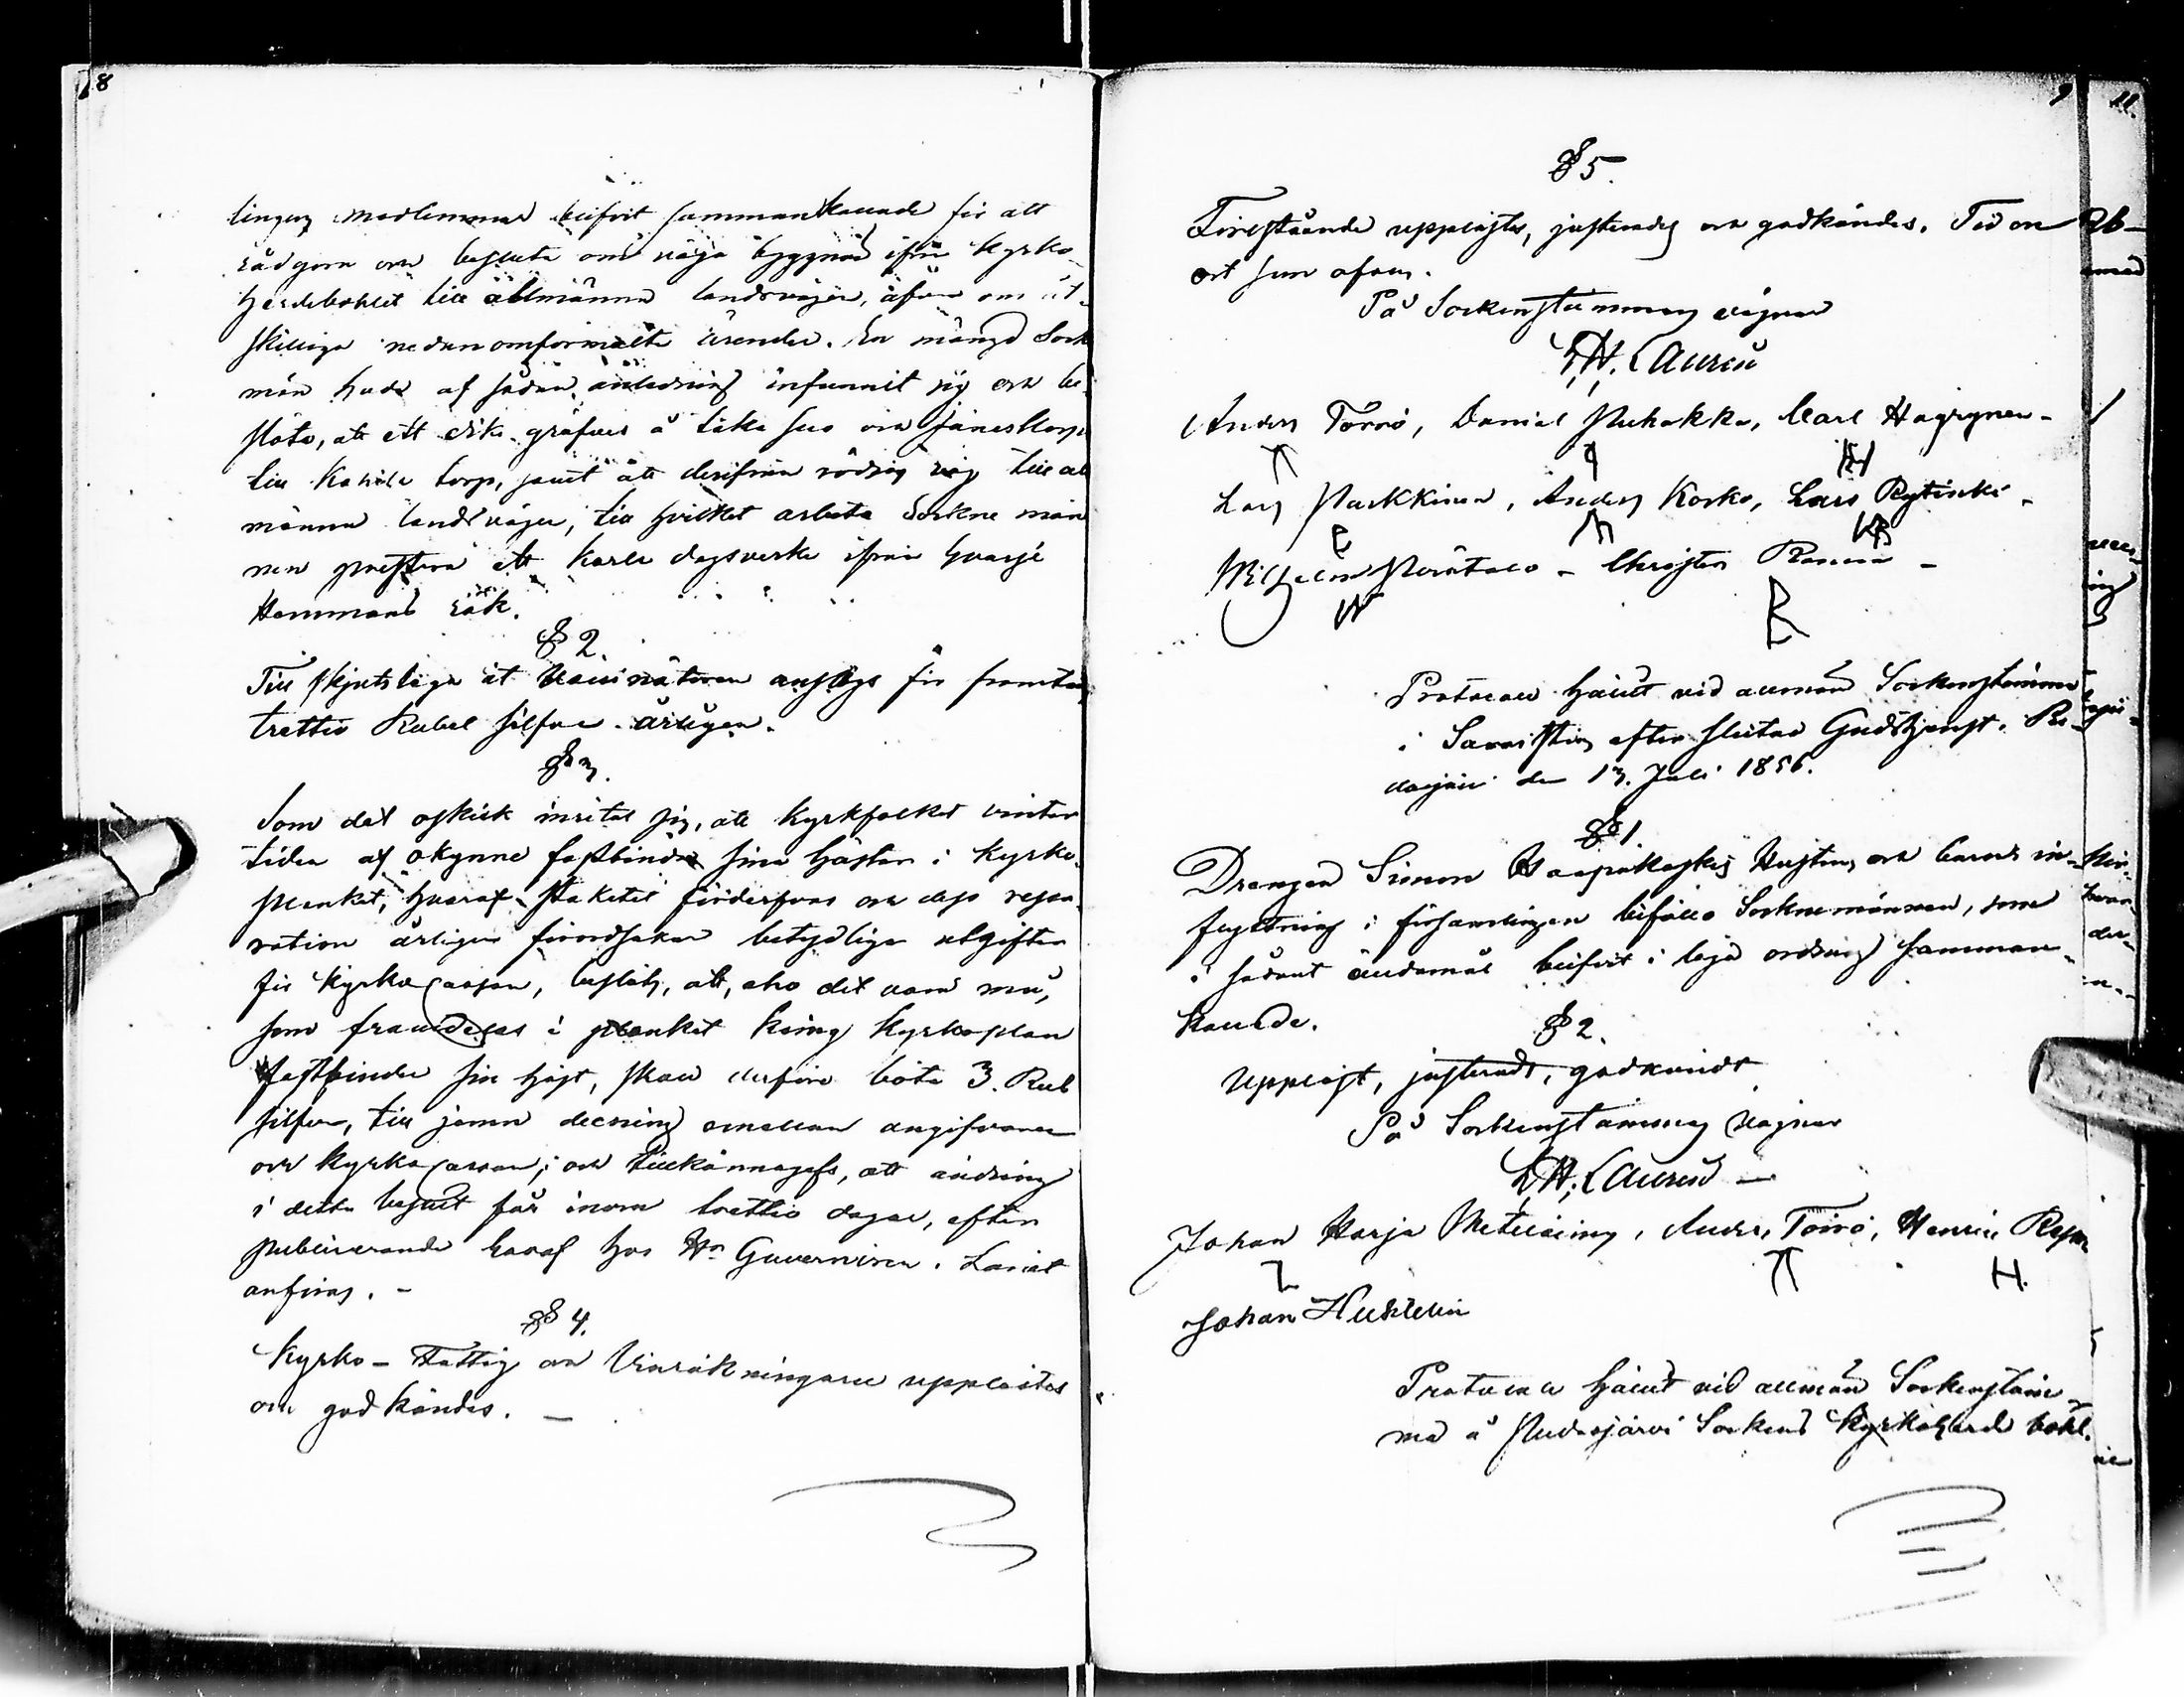 8
lingens medlemmar blifvit sammankallade för att
rådgöra och besluta om vägabyggnad ifrån Kyrko-
herdebohlet till allmänna landsvägen, äfven om åt-
skilliga nedanomförmälte ärender. En mängd Sock
män hade af sådan anledning infunnit sig och be-
slöto, att ett dike gräfves å
till torp, samt att derifrån rödjes väg till all
männa landsvägen, till hvilket arbete Sockne män
nen prestera ett karls dagsverke ifrån hvarje
Hemmans rök.
§ 2.
Till skjutslega åt Vaccinatoren anslogs för framtiden
trettio Rubel silfver årligen.
§ 3.
Som det oskick insitat sig, att Kyrkfolket vinter
tiden af okynne fastbinder sina hästar i Kyrko-
planket, hvaraf staketet förderfvas och dess repa-
ration årligen förordsakar betydliga utgifter
för Kyrko Cassan, beslöts, att, eho det vara må,
som framdeles i planket kring Kyrkoplan
fastbinder sin häst, skall derföre böta 3. Rub
silfver, till jemn delning emellan angifvaren
och Kyrko Cassan; och tillkännagafs, att ändring
i detta beslut får inom trettio dagar, efter
publicerande häraf hos Hr Guvernören i Länet
anföras. -
§ 4.
Kyrko- Fattig och Vinräkningarne upplästes
och godkändes. -
9
§ 5.
Föreståände upplästes, justerades och godkändes. Tid och
ort som ofvan.
På Sockenstämmans vägnar
L. H. Laurén
Anders Törrö, Daniel Puhakka, Carl Hagrynen -
Lars Parkkinen, Anders Korko, Lars Rytinki -
Wilhelm Perätalo - Christer
Protocoll hållit vid allmän Sockenstämma
i Sacristian efter slutad Gudstjenst. Pu-
dasjärvi den 13. Juli 1856.
§ 1.
Drengen Simon Haapakoskis Hustrus och barns in-
flyttning i församlingen biföllo Socknemännen, som
i sådant ändamål blifvit i laga ordning samman-
kallade.
§ 2.
Uppläst, justeradt, godkändt
På Sockenstämmans vägnar
L. H. Laurén -
Johan Harja Anders Törrö, Henric
H.
Johan
Protocoll hållit vid allmän Sockenstäm-
ma å Pudasjärvi Sockens Kyrkoherde bohl.
11.